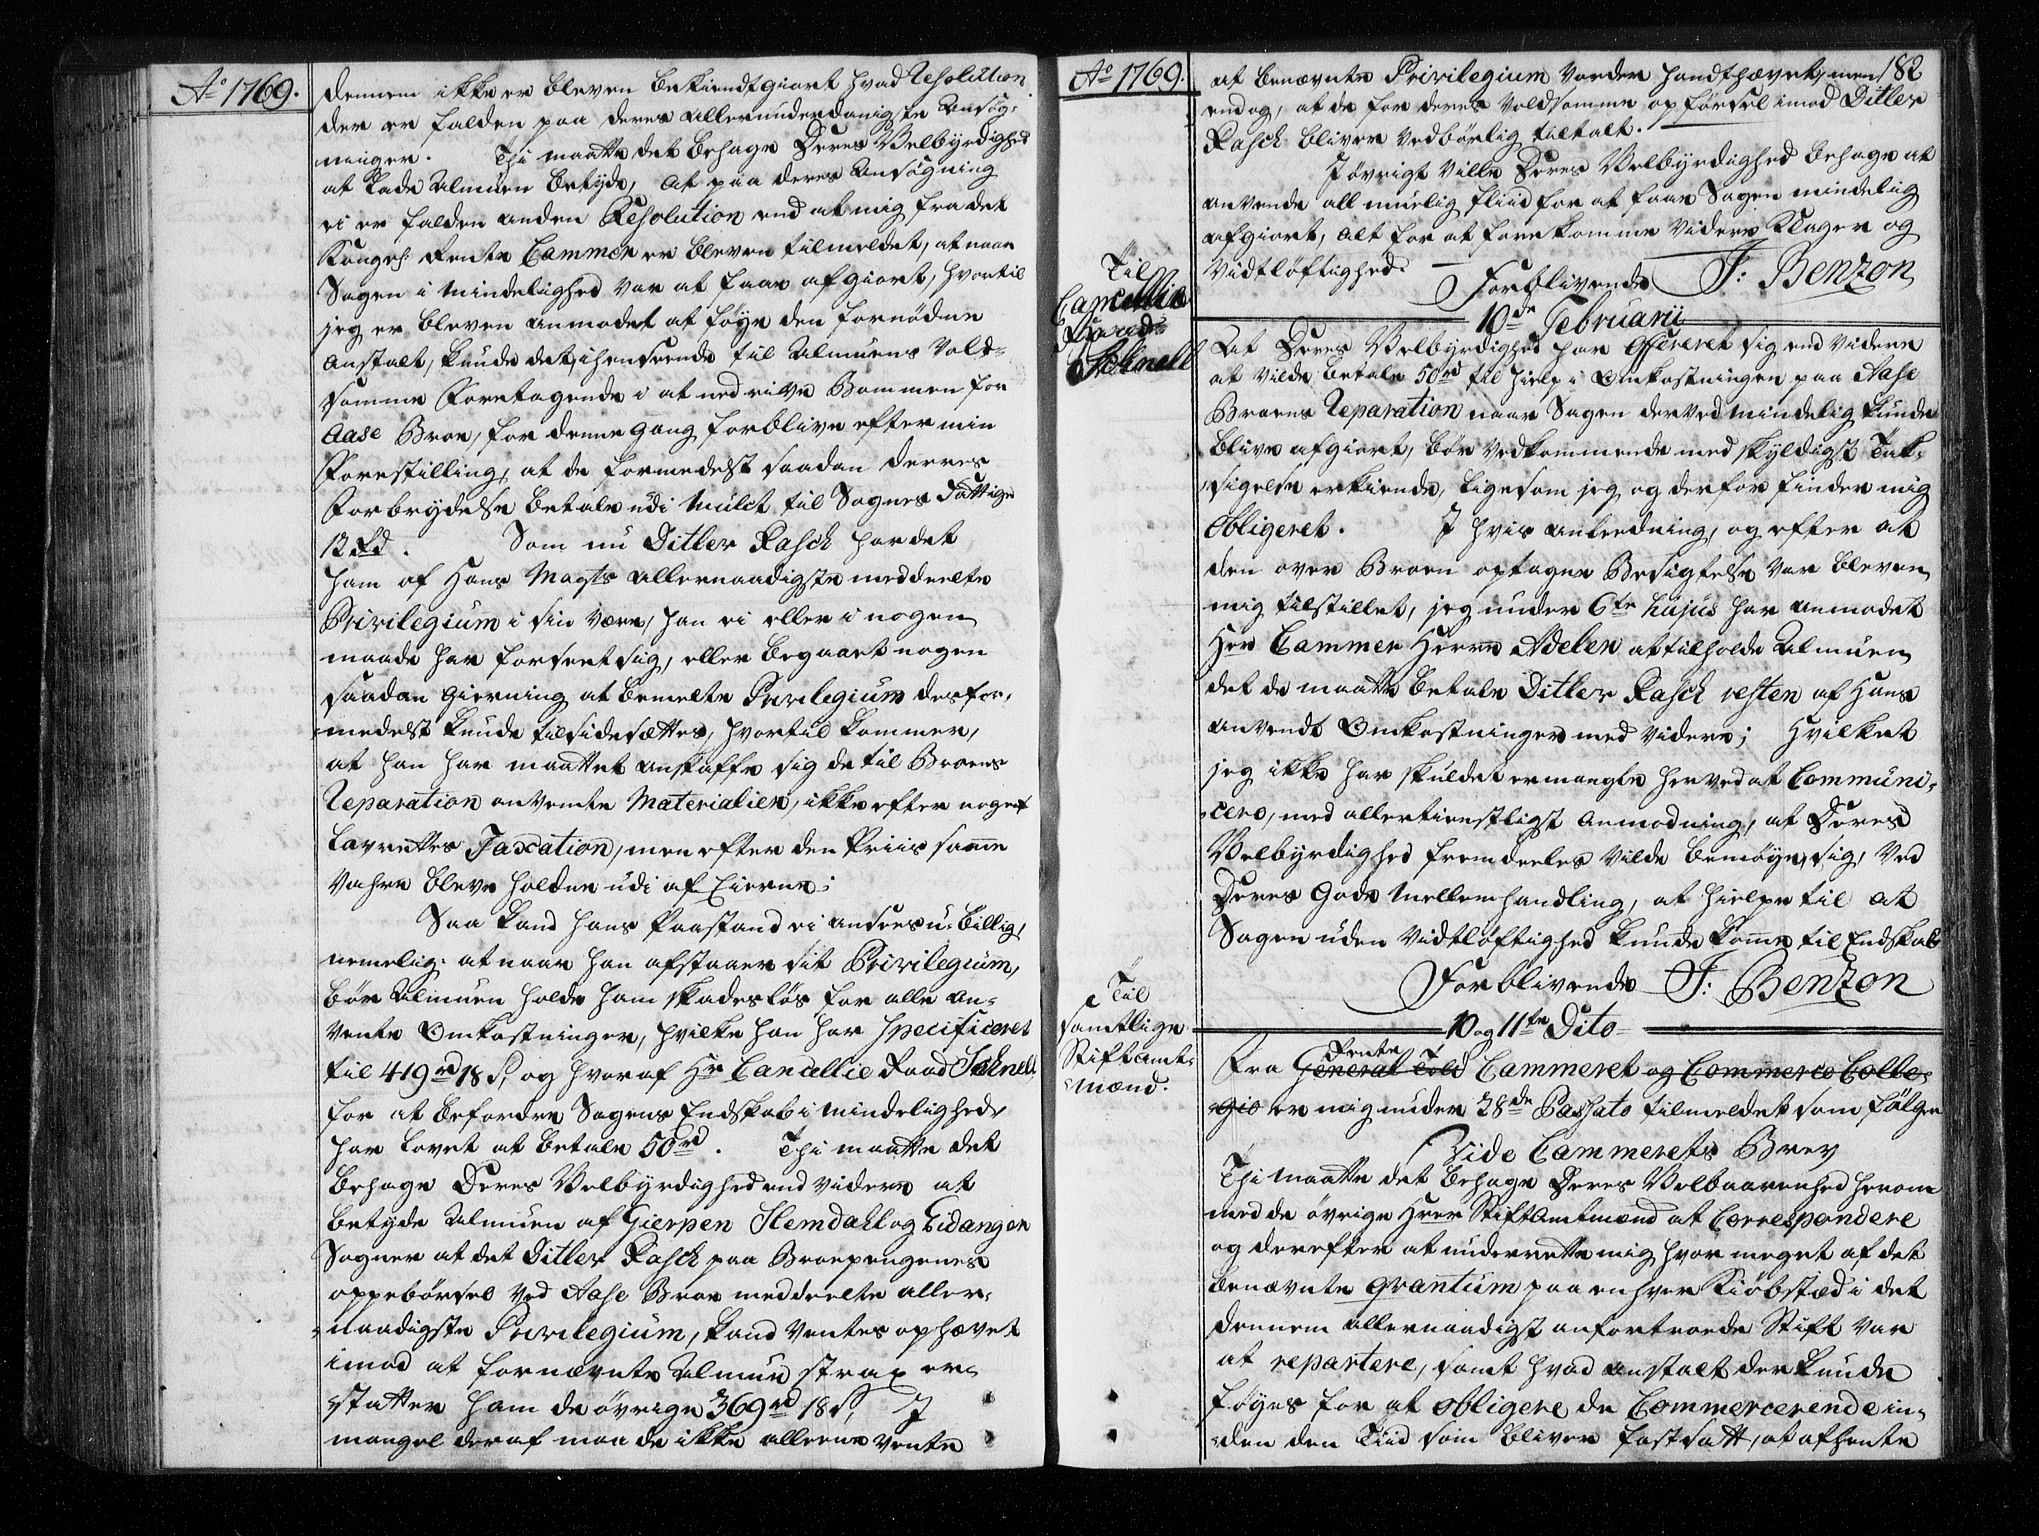 Ao 1769.
dennem ikke er bleven bekiendtgiort hvad Resolution
der er falden paa deres allerunderdanigste Ansøg-
ninger. Thi maatte det behage Deres Velbyrdighed
at lade Almuen betyde, at paa deres Ansøgning
ei er falden anden Resolution end at mig fra det
Kongel: Rente Cammer er bleven tilmeldet, at naar
Sagen i Mindelighed var at faae afgiort, hvortil
jeg er bleven anmodet at føye den fornødne
Anstalt, kunde det, i henseende til Almuens Vold-
somme Foretagende i at nedrive Bommen for
Aase Broe, for denne gang forblive efter min
Forestilling, at de formedelst saadan deres
Forbrydelse betale udi Mulct til Sognes Fattige
12 Rd. Som nu Ditlev Rasch har det
ham af Hans Mayts allernaadigste meddeelte
Privilegium i sin Være, han ei eller i nogen
maade har forseet sig, eller begaaet nogen
saadan Gierning at bemelte Privilegium desfor-
medelst kunde tilsidesættes, hvortil kommer,
at han har maattet anskaffe sig de til Broens
Reparation anvendte Materialier, ikke efter noget
Lavrettes Taxation, men efter den Priis samme
Vahre bleve holdne udi af Eierne;
Saa kand hans Paastand ei ansees u-billig,
nemelig: at naar han afstaaer sit Privilegium,
bør Almuen holde ham skadesløs for alle an-
vente Omkostninger, hvilke han har specificeret
til 419 rd 18 s, og hvoraf Hr Cancellie Raad
for at befordre Sagens Endskab i Mindelighed,
har lovet at betale 50 rd. Thi maatte det
behage Deres Velbyrdighed end videre at
betyde Almuen af Gierpen Slemdahl og Eidanger
Sogner at det Ditlev Rasch paa Broepengenes
oppebørsel ved Aase Broe meddeelte aller-
naadigste Privilegium, kand ventes ophævet
imod at fornævnte Almue strax er-
statter ham de øvrige 369 rd 18 s, I
mangel deraf maa de ikke alleene vente
Ao 1769.
182
at benævnte Privilegium vorder handthævet, men
endog, at de for deres voldsomme opførsel imod Ditlev
Rasch bliver vedbørlig tiltalt.
I øvrigt ville Deres Velbyrdighed behage at
anvende all muelig fliid for at faae Sagen mindelig
afgiort, alt for at forekomme videre Klager og
Vidtløftighed. Forblivende J: Benzon
10de Februarii
Til
Cancellie
Raad
At Deres Velbyrdighed har offereret sig end videre
at vilde betale 50 rd til Hielp i Omkostningen paa Aase
Broens Reparation naar Sagen derved mindelig kunde
blive afgiort, bør vedkommende med skyldigst Tak-
sigelse erkiende, ligesom jeg og derfor finder mig
obligeret. I hvis anleedning, og efter at
den over Broen optagne Besigtelse var bleven
mig tilstillet, jeg under 6te hujus har anmodet
Herr Cammer Herre Adeler at tilholde Almuen
det de maatte betale Ditlev Rasch resten af Hans
anvendt Omkostninger med videre; Hvilket
jeg ikke har skuldet ermangle herved at Communi-
cere, med allertienstligst anmodning, at Deres
Velbyrdighed fremdeeles vilde bemøye sig, ved
Deres Gode Mellemhandling, at hielpe til at
Sagen uden Vidtløftighed kunde komme til Endskab
Forblivende J: Benzon
10 og 11te Dito
Til
samtlige
Stiftamt-
mænd.
Fra General Told Rente Cammeret og Commerce Colle-
gio er mig under 28de Passato tilmeldet som følger
Vide Cammerets Brev
Thi maatte det behage Deres Velbaarenhed herom
med de øvrige Herr Stiftamtmænd at Correspondere
og derefter at underrette mig, hvor meget af det
benævnte qvantum paa enhver Kiøbstæd i det
dennem allernaadigst anfortroede Stift var
at repartere, samt hvad anstalt der kunde
føyes for at obligere de Commercerende in-
den den Tiid som bliver fastsatt, at afhente